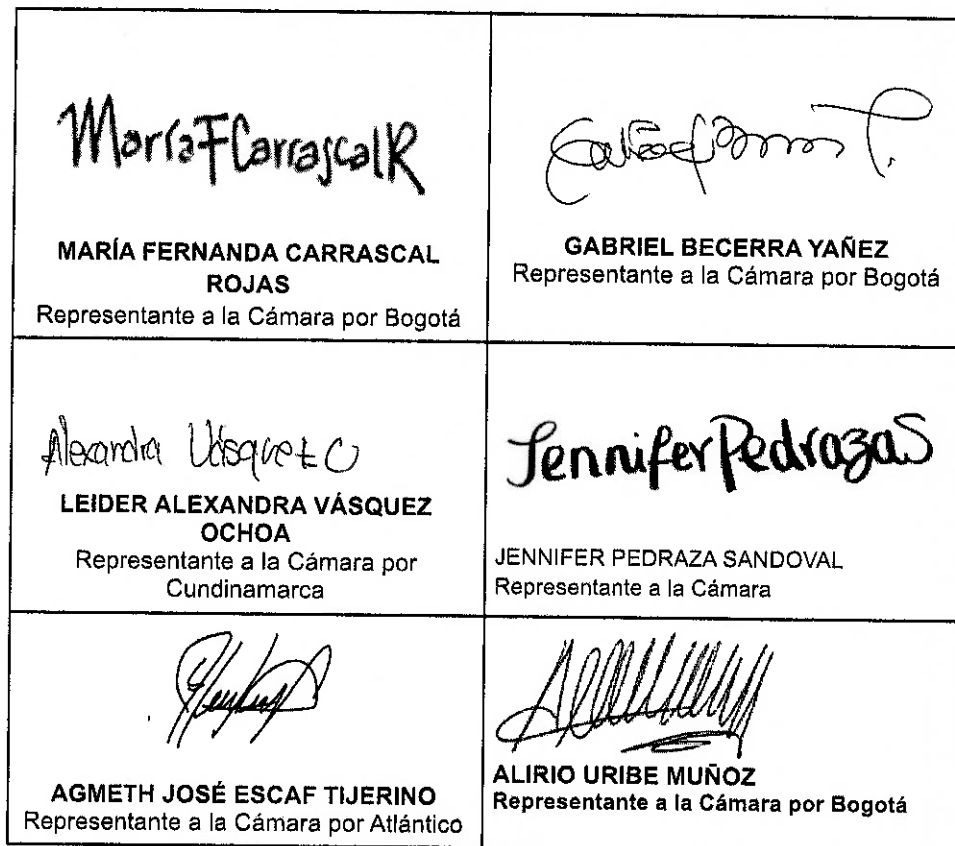 MaríaFCarrascalR
MARÍA FERNANDA CARRASCAL
ROJAS
Representante a la Cámara por Bogotá
GABRIEL BECERRA YAÑEZ
Representante a la Cámara por Bogotá
Alexandra Vásquez O
LEIDER ALEXANDRA VÁSQUEZ
OCHOA
Representante a la Cámara por
Cundinamarca
Jennifer Pedraza S
JENNIFER PEDRAZA SANDOVAL
Representante a la Cámara
AGMETH JOSÉ ESCAF TIJERINO
Representante a la Cámara por Atlántico
ALIRIO URIBE MUÑOZ
Representante a la Cámara por Bogotá